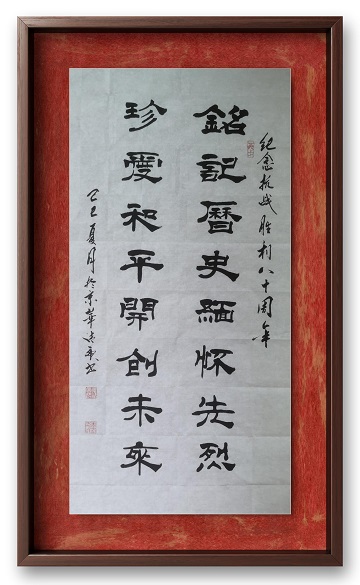 纪念抗战胜利八十周年
銘記曆史緬怀先烈
珍愛和平開創未來
乙巳夏月於京華